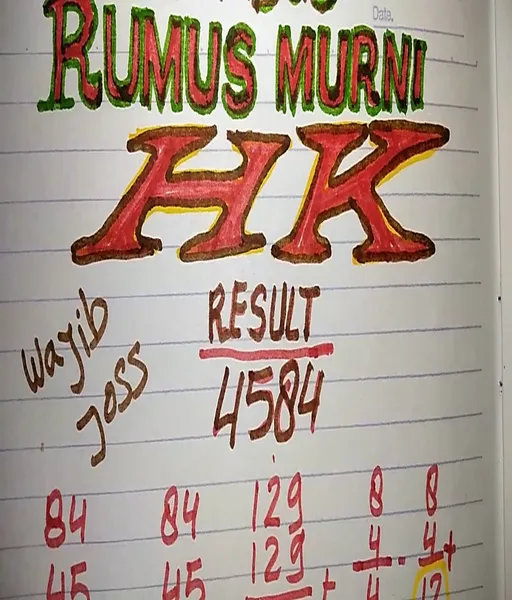 Date.
RUMUS MURNI
HK
Wajib
Joss
RESULT
4584
84 84 129 8 8
45 45 129 + 4 - 4 +
4 12